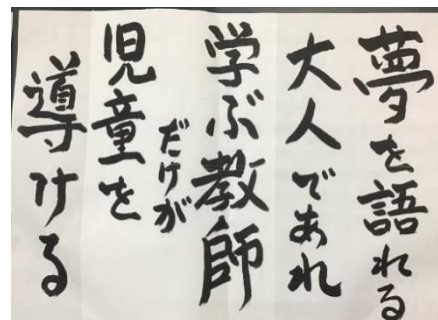 夢を語れる
大人であれ
学ぶ教師
だけが
児童を
導ける